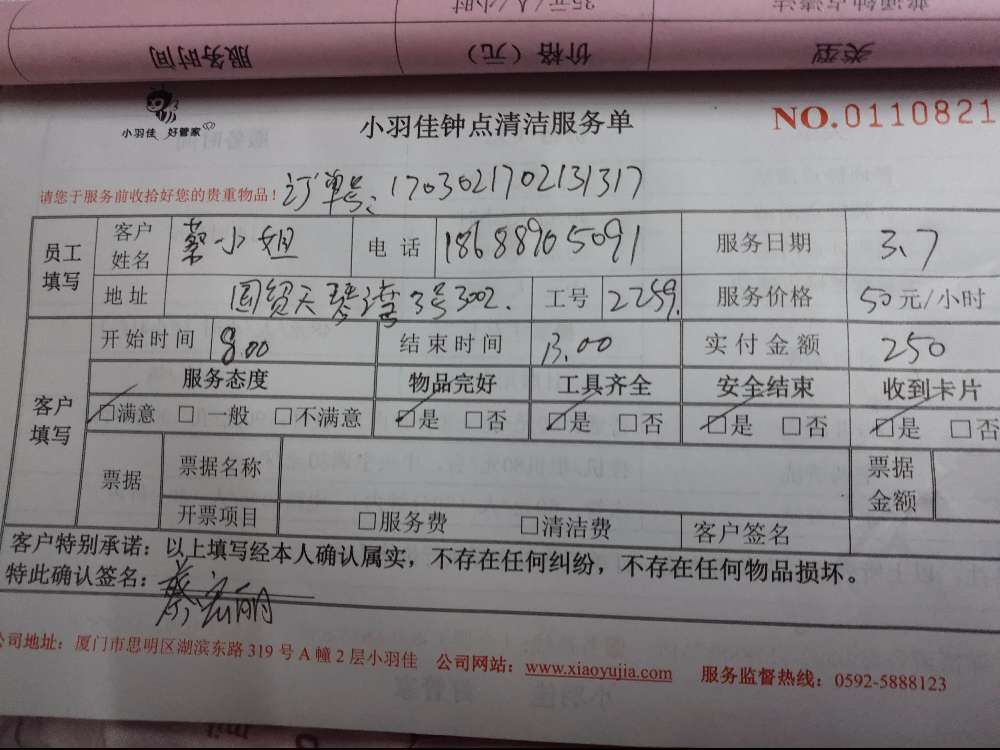 服务时间 价格（元） 类型
35元/人/小时
小羽佳 好管家
小羽佳钟点清洁服务单
NO.0110821
请您于服务前收拾好您的贵重物品！
订单号：170302170213131​7
员工填写 客户姓名 蔡小姐 电话 18688905091 服务日期 3.7
地址 国贸天琴湾3号3002. 工号 2259. 服务价格 50元/小时
客户填写 开始时间 8.00 结束时间 13.00 实付金额 250
服务态度 物品完好 工具齐全 安全结束 收到卡片
☑满意 □一般 □不满意 ☑是 □否 ☑是 □否 ☑是 □否 ☑是 □否
票据 票据名称 票据金额
开票项目 □服务费 □清洁费 客户签名
客户特别承诺：以上填写经本人确认属实，不存在任何纠纷，不存在任何物品损坏。
特此确认签名：蔡宏丽
公司地址：厦门市思明区湖滨东路319号A幢2层小羽佳 公司网站：www.xiaoyujia.com 服务监督热线：0592-5888123